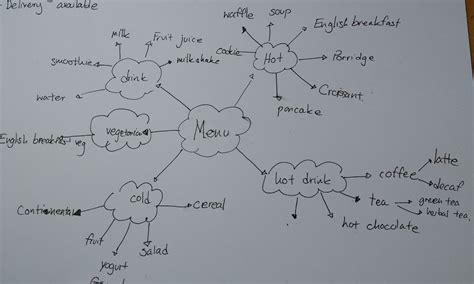 - Delivery - available
waffle
soup
English breakfast
milk
Fruit juice
cookie
Hot
Porridge
smoothie
milkshake
drink
Croissant
water
pancake
Menu
vegetarian
English breakfast veg
hot drink
coffee
latte
decaf
tea
green tea
herbal tea
hot chocolate
cold
Continental
cereal
fruit
yogurt
salad